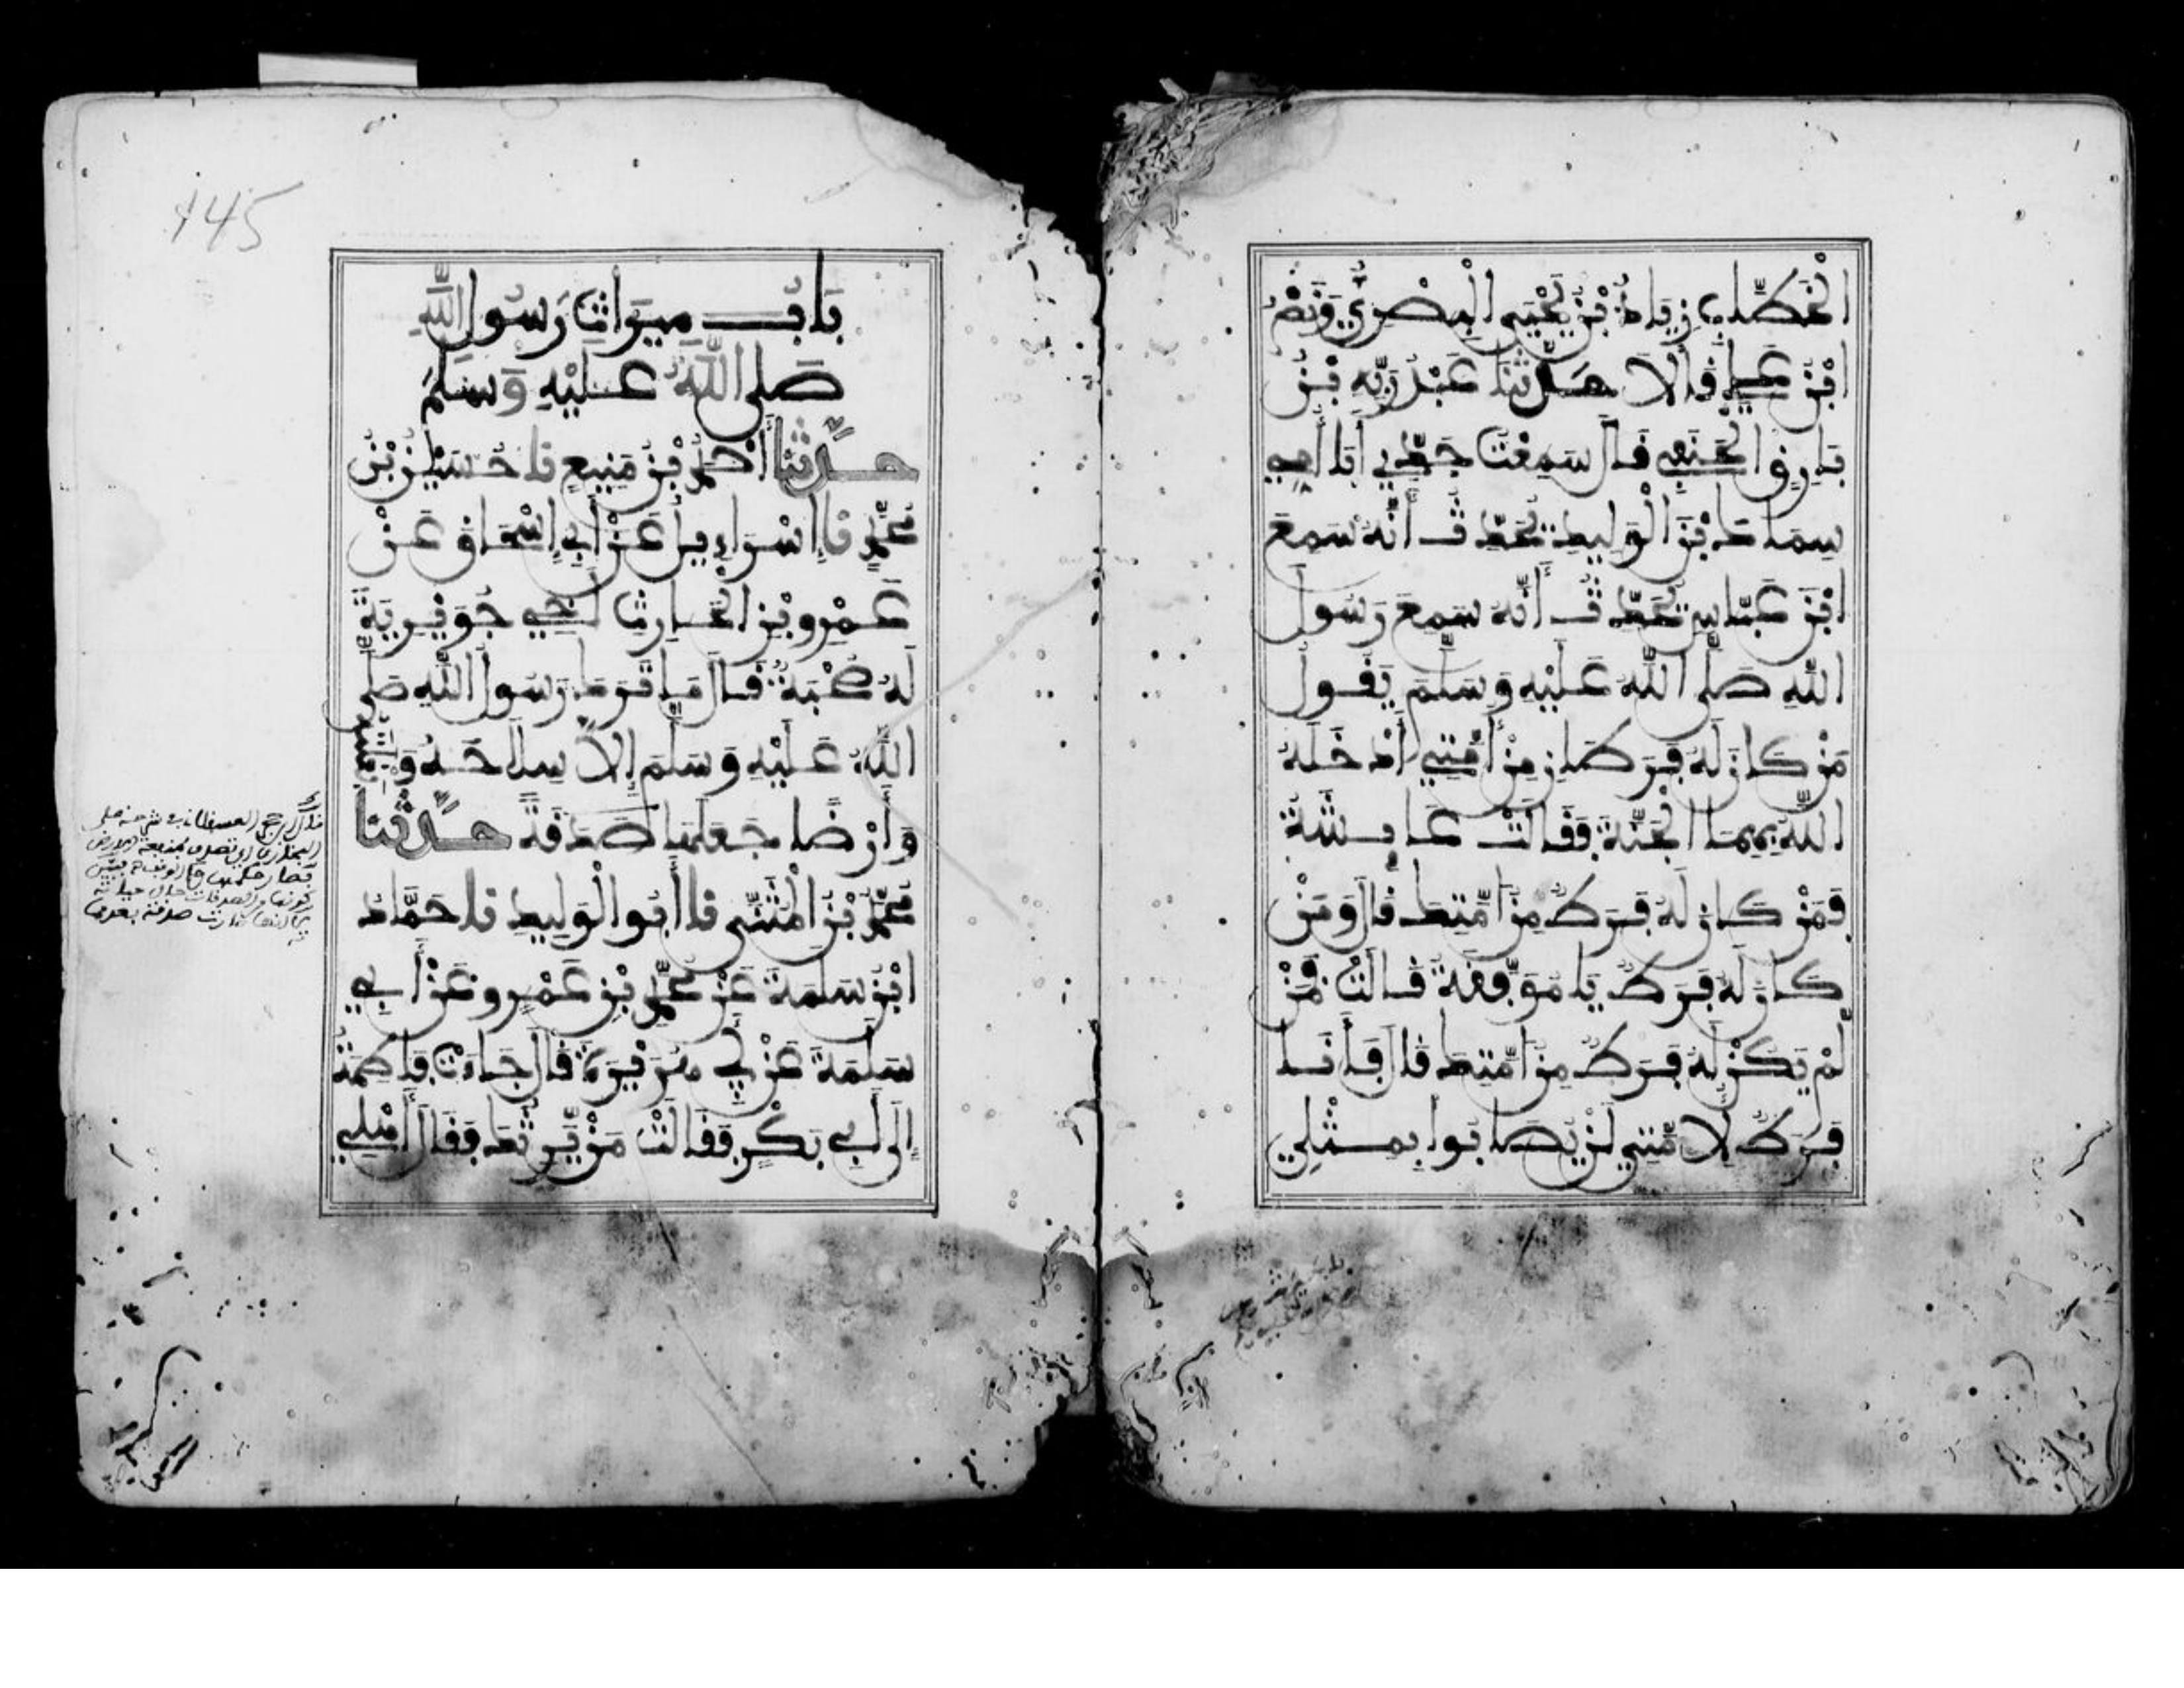 الْخَطَّابِ زِيَادُ بْنُ يَحْيَى الْبَصْرِيُّ وَنَصْرُ
ابْنُ عَلِيٍّ قَالَا حَدَّثَنَا عَبْدُ رَبِّهِ بْنُ
بَارِقٍ الْحَنَفِيُّ قَالَ سَمِعْتُ جَدِّي أَبَا أُمِّي
سِمَاكَ بْنَ الْوَلِيدِ يُحَدِّثُ أَنَّهُ سَمِعَ
ابْنَ عَبَّاسٍ يُحَدِّثُ أَنَّهُ سَمِعَ رَسُولَ
اللَّهِ صَلَّى اللَّهُ عَلَيْهِ وَسَلَّمَ يَقُولُ
مَنْ كَانَ لَهُ فَرَطَانِ مِنْ أُمَّتِي أَدْخَلَهُ
اللَّهُ بِهِمَا الْجَنَّةَ فَقَالَتْ عَائِشَةُ
فَمَنْ كَانَ لَهُ فَرَطٌ مِنْ أُمَّتِكَ قَالَ وَمَنْ
كَانَ لَهُ فَرَطٌ يَا مُوَفَّقَةُ قَالَتْ فَمَنْ
لَمْ يَكُنْ لَهُ فَرَطٌ مِنْ أُمَّتِكَ قَالَ فَأَنَا
فَرَطٌ لِأُمَّتِي لَنْ يُصَابُوا بِمِثْلِي
145
بَابُ مِيرَاثِ رَسُولِ اللَّهِ
صَلَّى اللَّهُ عَلَيْهِ وَسَلَّمَ
حَدَّثَنَا أَحْمَدُ بْنُ مَنِيعٍ نا حُسَيْنُ بْنُ
مُحَمَّدٍ نا إِسْرَاءِيلُ عَنْ أَبِي إِسْحَاقَ عَنْ
عَمْرِو بْنِ الْحَارِثِ أَخِي جُوَيْرِيَةَ
لَهُ صُحْبَةٌ قَالَ مَا تَرَكَ رَسُولُ اللَّهِ صَلَّى
اللَّهُ عَلَيْهِ وَسَلَّمَ إِلَّا سِلَاحَهُ وَبَغْلَتَهُ
وَأَرْضًا جَعَلَهَا صَدَقَةً حَدَّثَنَا
مُحَمَّدُ بْنُ الْمُثَنَّى نا أَبُو الْوَلِيدِ نا حَمَّادُ
ابْنُ سَلَمَةَ عَنْ مُحَمَّدِ بْنِ عَمْرٍو عَنْ أَبِي
سَلَمَةَ عَنْ أَبِي هُرَيْرَةَ قَالَ جَاءَتْ فَاطِمَةُ
إِلَى أَبِي بَكْرٍ فَقَالَتْ مَنْ يَرِثُكَ فَقَالَ أَهْلِي
قال ابن حجر العسقلاني في شرحه على
البخاري اي تصدق بمنفعة الارض